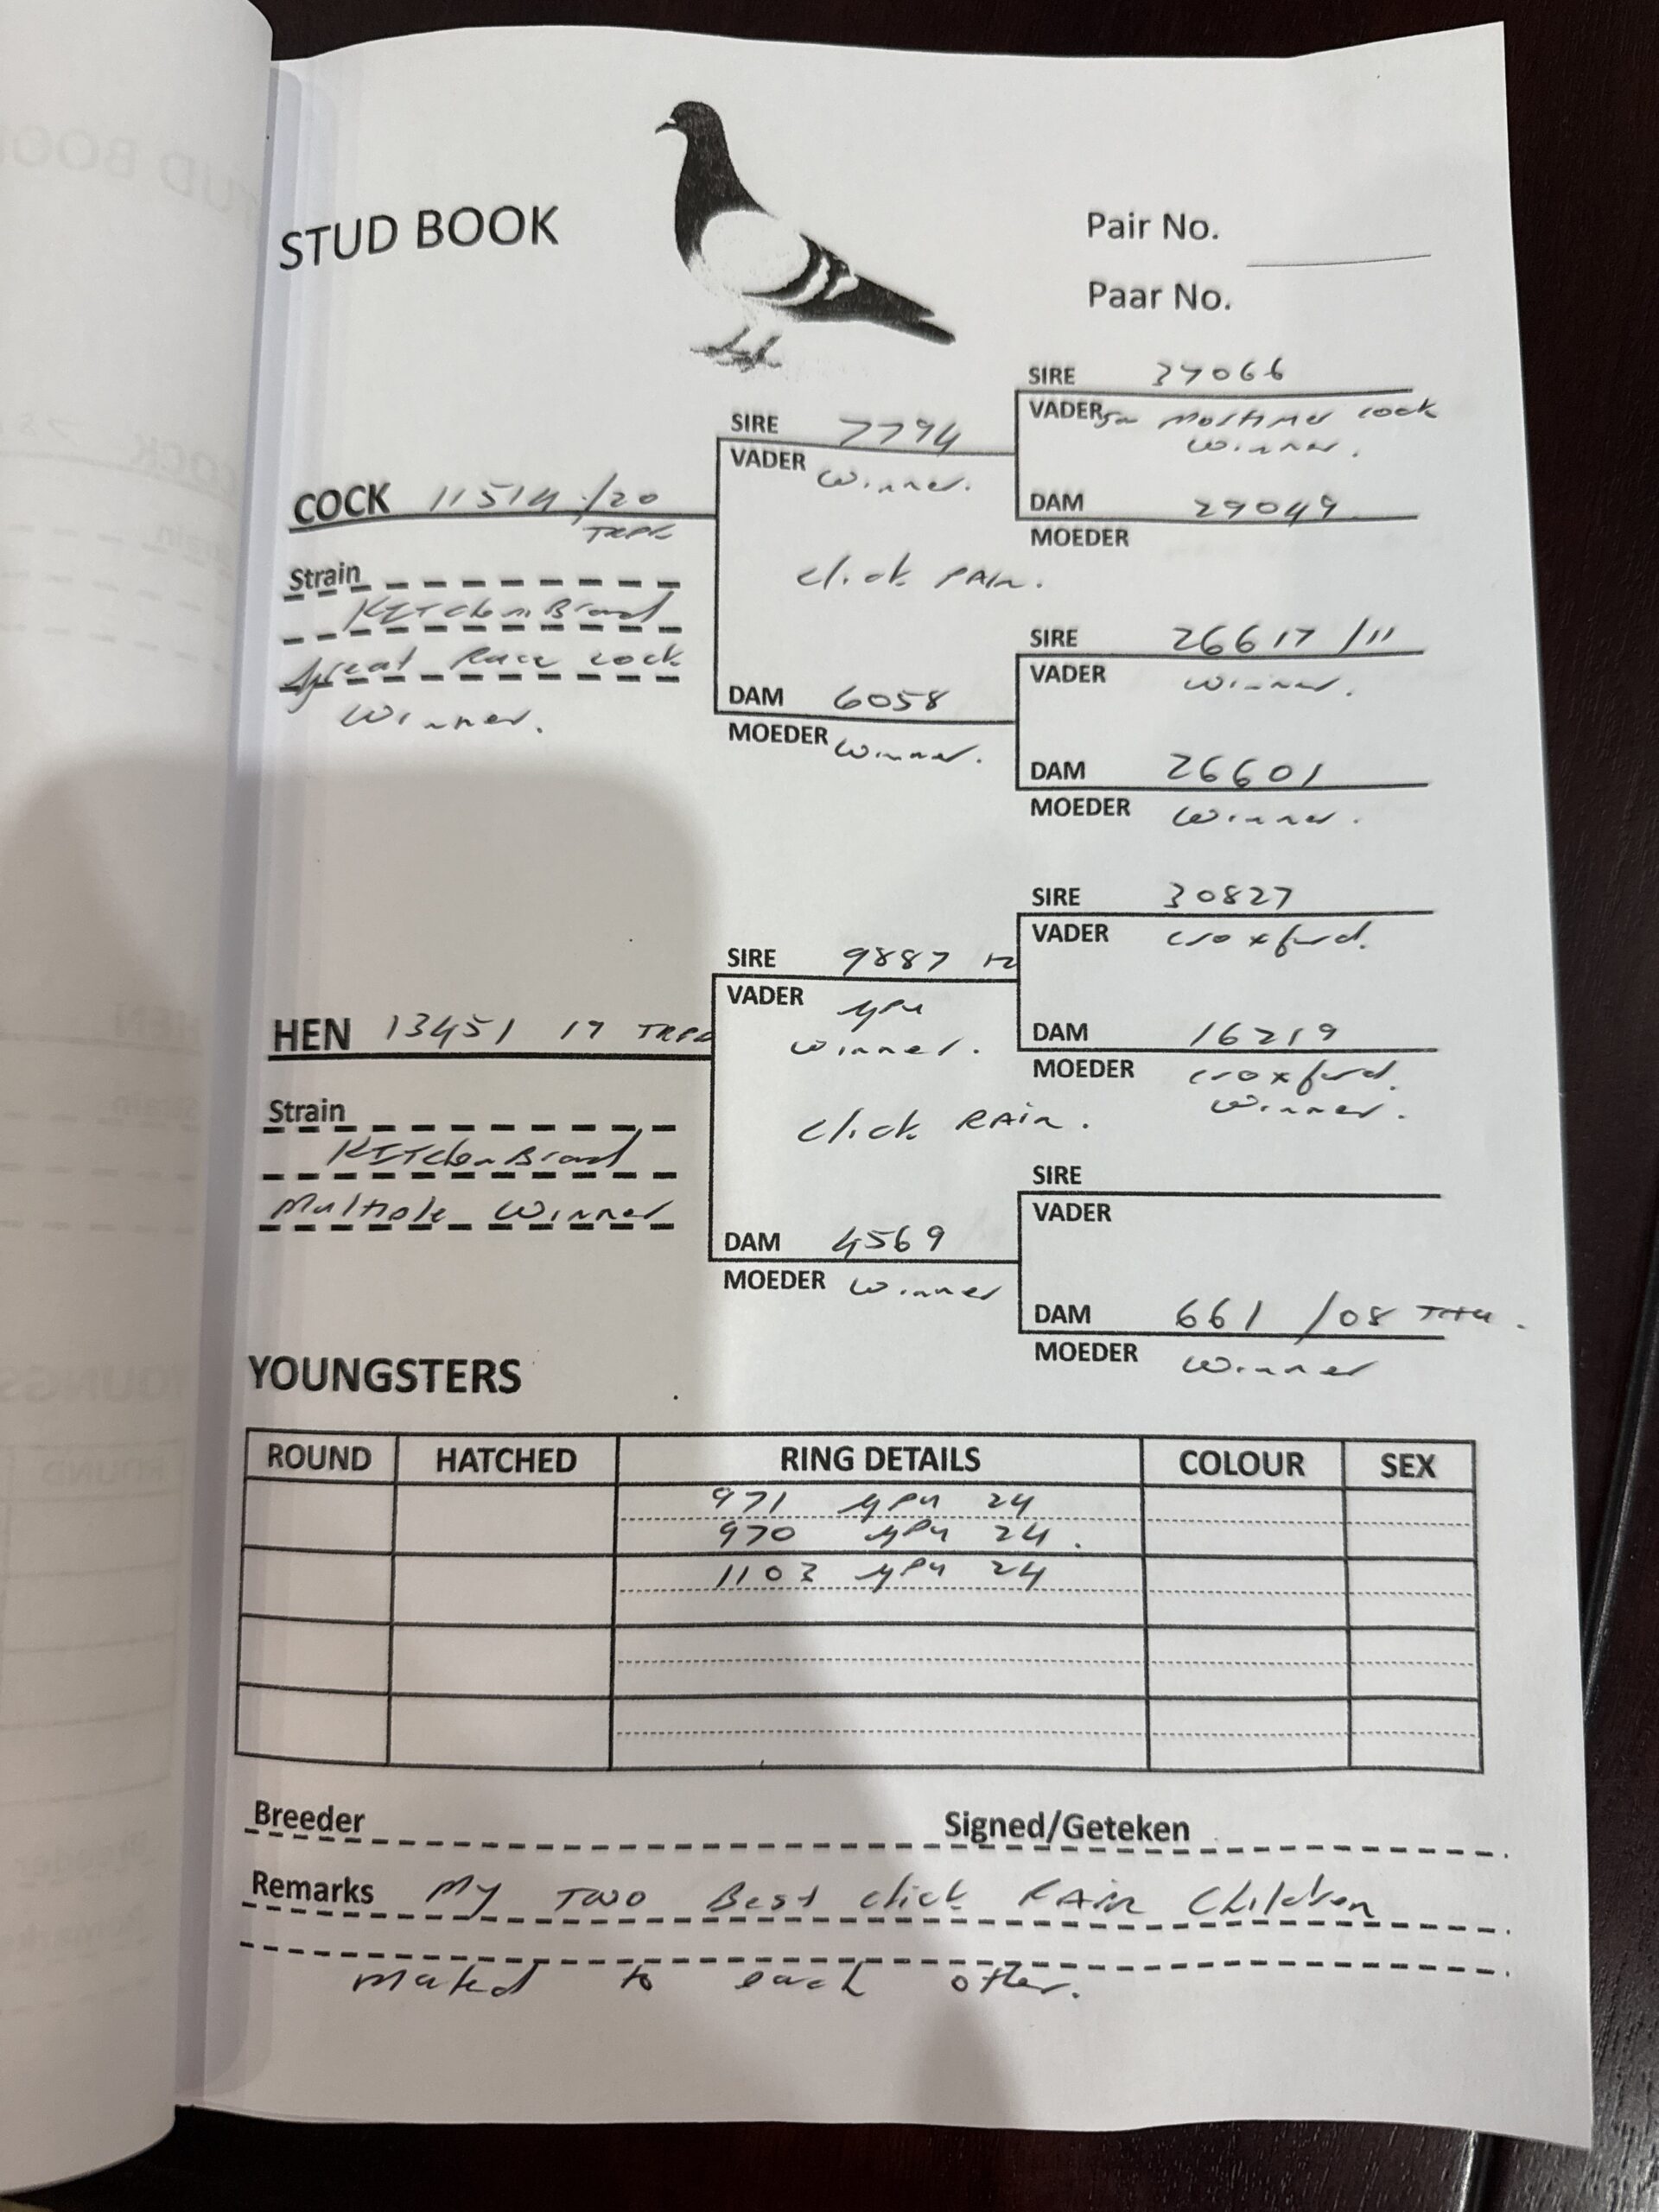 STUD BOOK
Pair No.
Paar No.
SIRE 37066
VADER Mortimer cock
winner.
DAM 29049
MOEDER
SIRE 7794
VADER winner.
COCK 11514/20
TRPC
Strain
Kitchen Brand
Great Race cock
winner.
click PAIR.
SIRE 26617 /11
VADER winner.
DAM 6058
MOEDER winner.
DAM 26601
MOEDER winner.
SIRE 30827
VADER croxford.
SIRE 9887 12
VADER
winner.
DAM 16219
MOEDER croxford.
winner.
HEN 13451 19 TRPC
Strain
Kitchen Brand
Multiple winner
click PAIR.
SIRE
VADER
DAM 4569
MOEDER winner
DAM 661 /08
MOEDER winner
YOUNGSTERS
ROUND HATCHED RING DETAILS COLOUR SEX
971 24
970 24.
1103 24
Breeder Signed/Geteken
Remarks My TWO Best click PAIR Children
mated to each other.